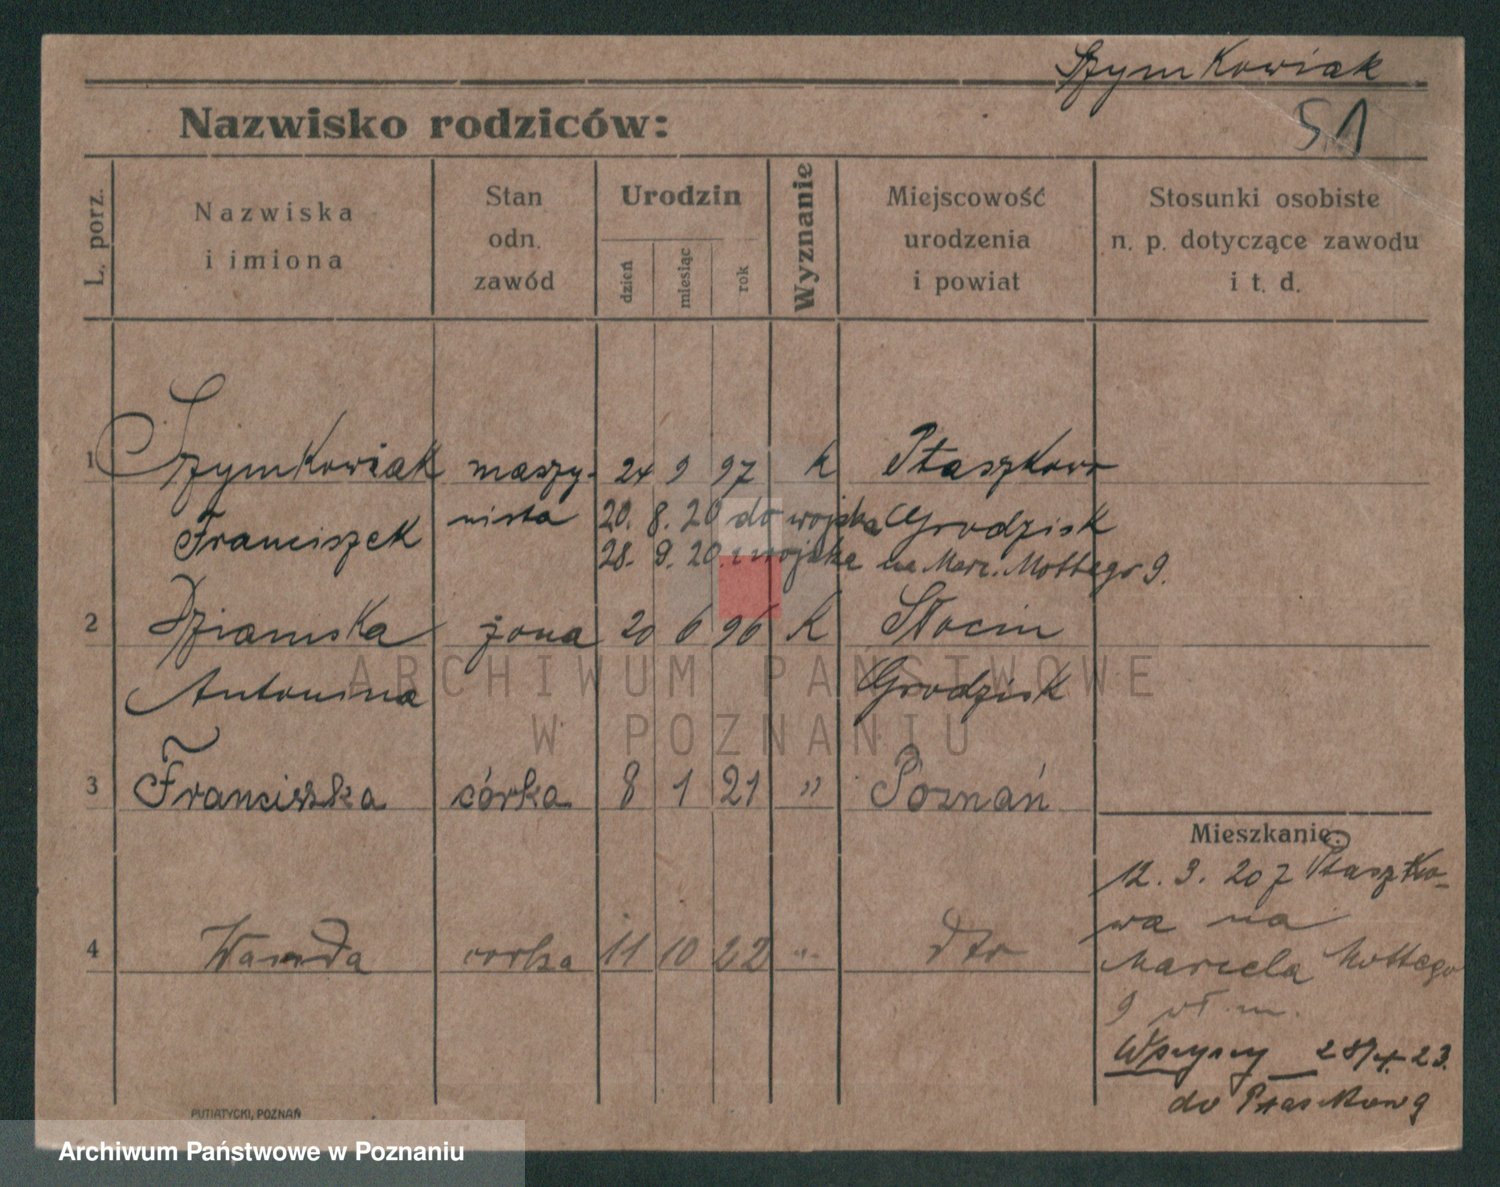 Szymkowiak
51
Nazwisko rodziców:
L. porz.
Nazwiska
i imiona
Stan
odn.
zawód
Urodzin
dzień
miesiąc
rok
Wyznanie
Miejscowość
urodzenia
i powiat
Stosunki osobiste
n. p. dotyczące zawodu
i t. d.
1 Szymkowiak maszy- 24 9 97 K Ptaszkowo
Franciszek nista 20. 8. 20 do wojska Grodzisk
28. 9. 20. z wojska na Marc. Mottego 9.
2 Dziamska żona 20 6 96 K Słocin
Antonina Grodzisk
ARCHIWUM PAŃSTWOWE
W POZNANIU
3 Franciszka córka 8 1 21 " Poznań
Mieszkanie:
12. 3. 20 z Ptaszko-
wa na
Marcela Mottego
9 wł. m.
4 Wanda córka 11 10 22 " dto
Wszyscy 28/4. 23.
do Ptaszkowa
PUTIATYCKI, POZNAŃ
Archiwum Państwowe w Poznaniu